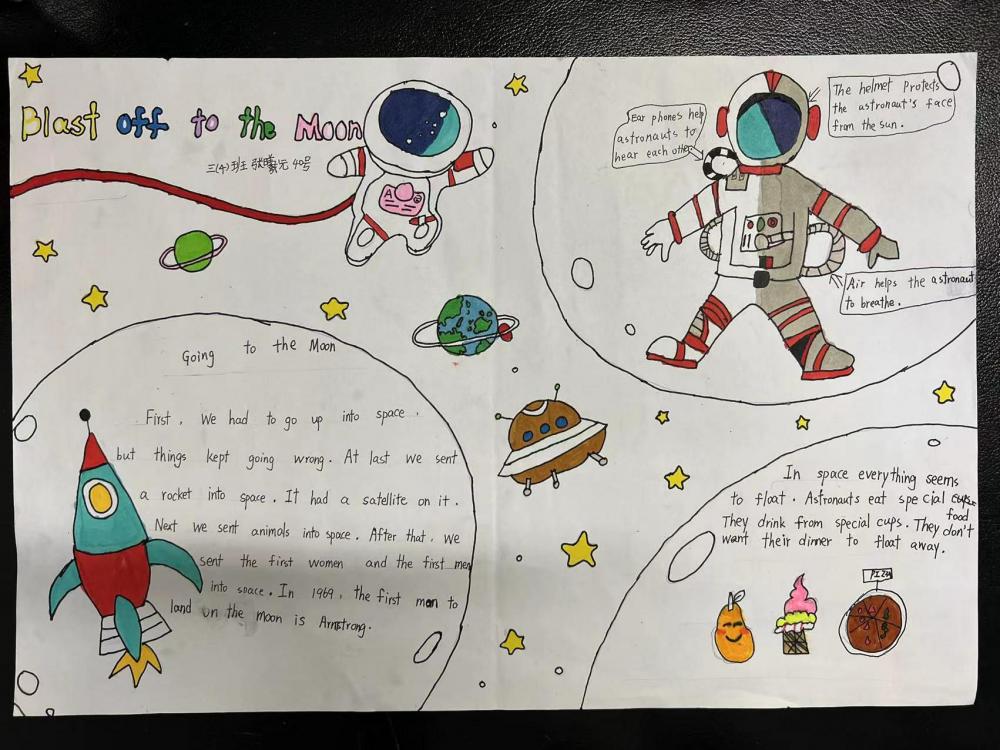 Blast off to the Moon
三(4)班 张曦元 40号
Ear phones help
astronauts to
hear each other.
The helmet protects
the astronaut's face
from the sun.
Air helps the astronaut
to breathe.
A
Going to the Moon
First, We had to go up into space,
but things kept going wrong. At last we sent
a rocket into space. It had a satellite on it.
Next we sent animals into space. After that, we
sent the first women and the first men
into space. In 1969, the first man to
land on the moon is Armstrong.
In space everything seems
to float. Astronauts eat special food
They drink from special cups. They don't
want their dinner to float away.
PIZZA